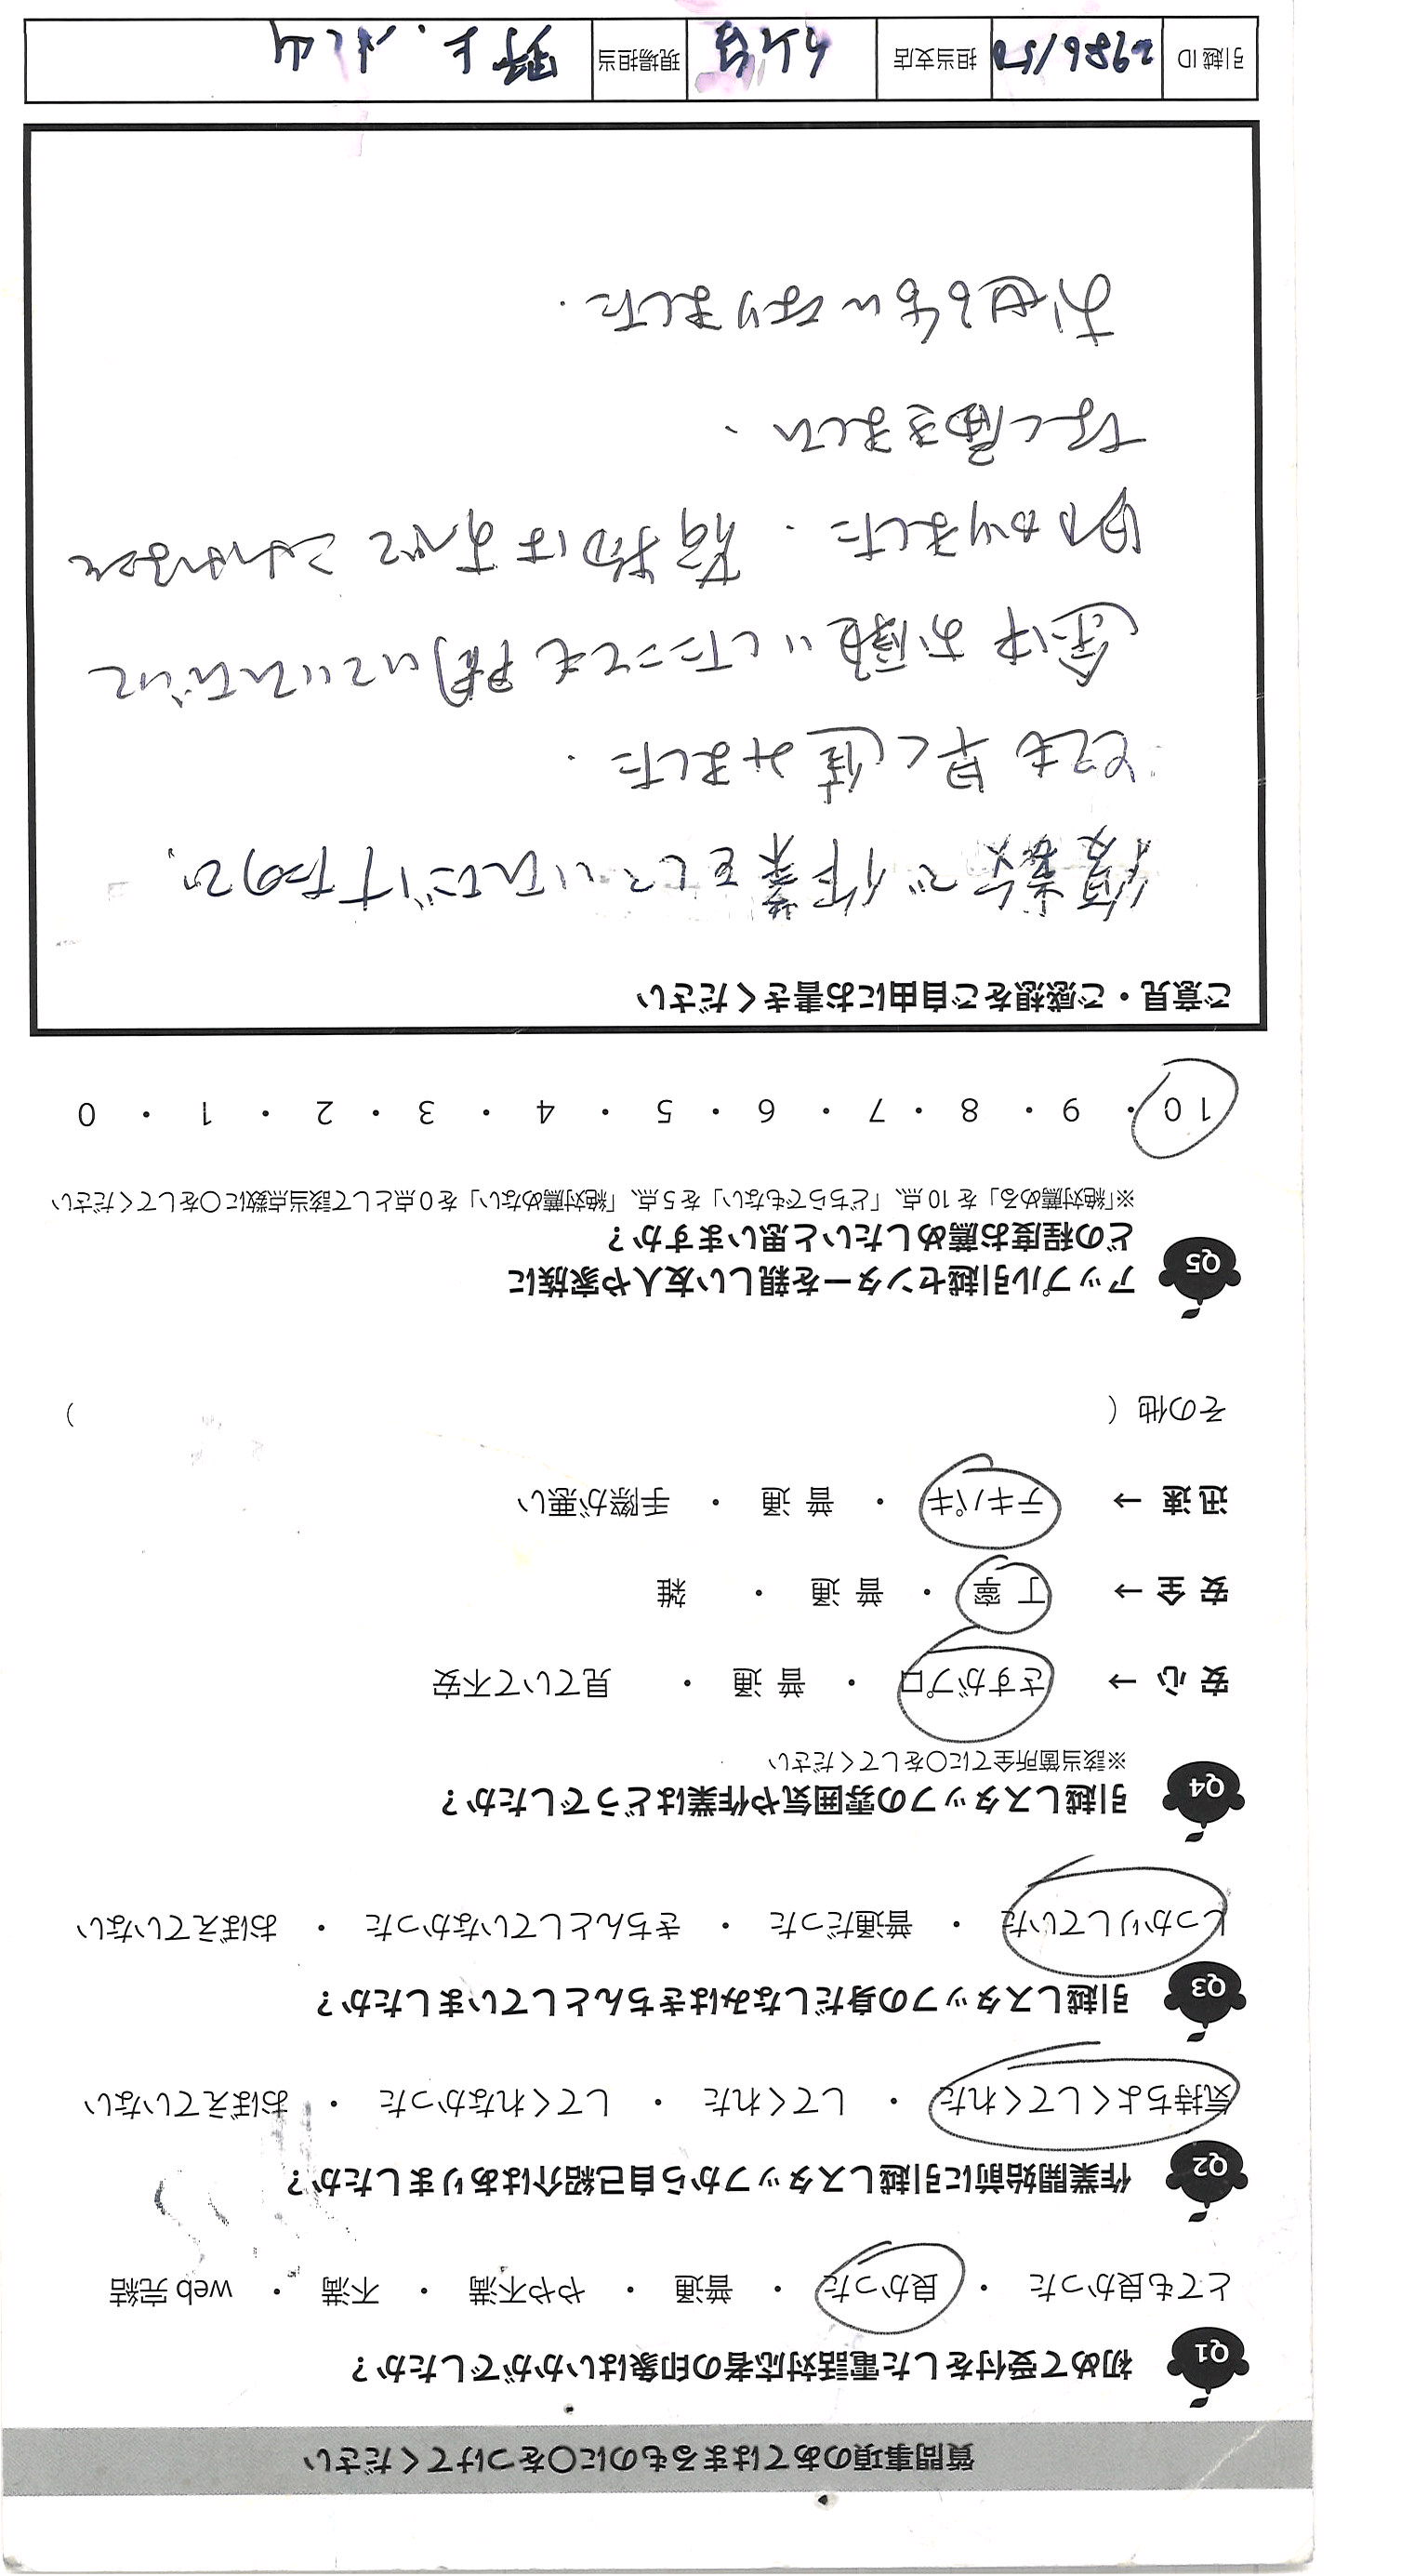 質問事項のあてはまるものに〇をつけてください
Q1 初めて受付をした電話対応者の印象はいかがでしたか？
とても良かった ・ 良かった ・ 普通 ・ やや不満 ・ 不満 ・ web完結
Q2 作業開始前に引越しスタッフから自己紹介はありましたか？
気持ちよくしてくれた ・ してくれた ・ してくれなかった ・ おぼえていない
Q3 引越しスタッフの身だしなみはきちんとしていましたか？
しっかりしていた ・ 普通だった ・ きちんとしていなかった ・ おぼえていない
Q4 引越しスタッフの雰囲気や作業はどうでしたか？
※該当箇所全てに〇をしてください
安心→ さすがプロ ・ 普通 ・ 見ていて不安
安全→ 丁寧 ・ 普通 ・ 雑
迅速→ テキパキ ・ 普通 ・ 手際が悪い
その他（ ）
Q5 アップル引越センターを親しい友人や家族に
どの程度お薦めしたいと思いますか？
※「絶対薦める」を10点、「どちらでもない」を5点、「絶対薦めない」を0点として該当点数に〇をしてください
10 ・ 9 ・ 8 ・ 7 ・ 6 ・ 5 ・ 4 ・ 3 ・ 2 ・ 1 ・ 0
ご意見・ご感想をご自由にお書きください
複数で作業をしていただけたので、
とても早く進みました．
途中お願いしたことも聞いていただいて
助かりました．荷物はすべてこわれること
なく届きました．
お世話になりました．
引越ID 2986150 担当支店 現場担当 野上．